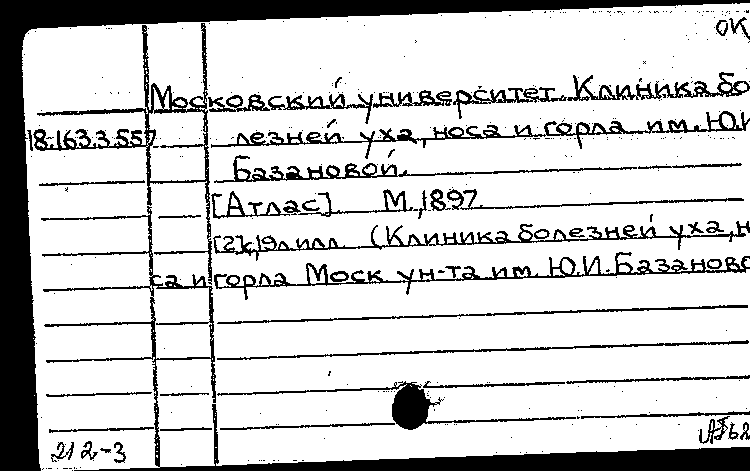 ОК
Московский университет. Клиника бо
18.163.3.557 лезней уха, носа и горла им. Ю.И
Базановой.
[Атлас]. М., 1897.
[2]с, 19л илл. (Клиника болезней уха, н
са и горла Моск ун-та им. Ю.И. Базаново
212-3